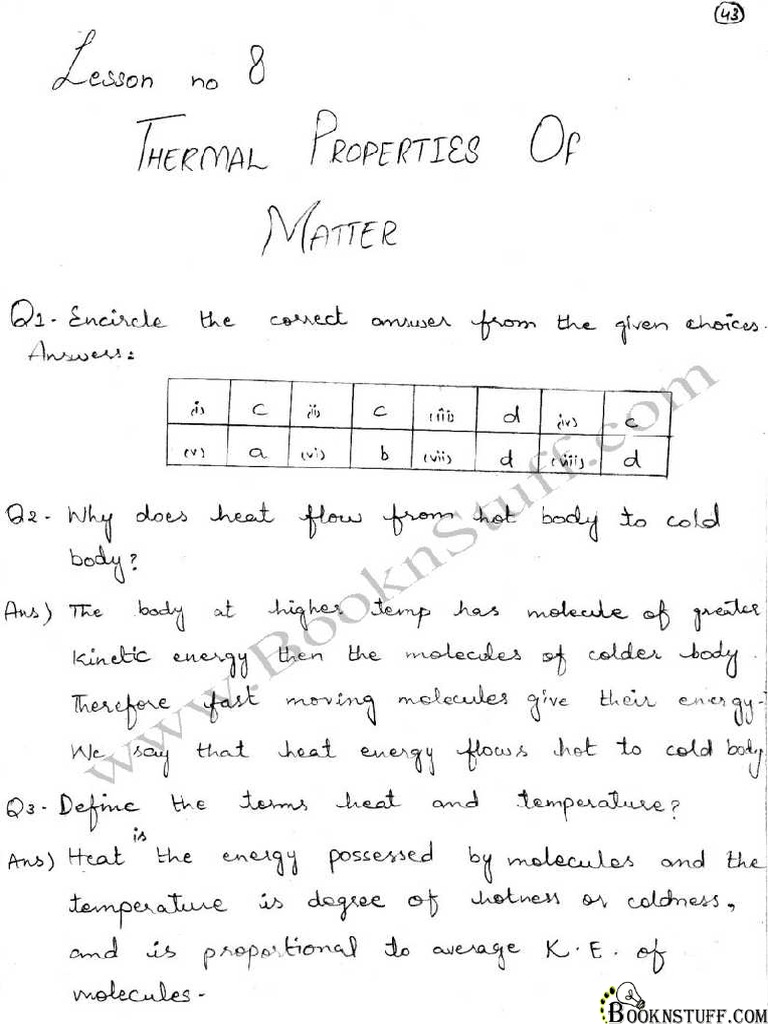 43
Lesson no 8
THERMAL PROPERTIES OF
MATTER
Q1- Encircle the correct answer from the given choices.
Answers:
(i) c (ii) c (iii) d (iv) c
(v) a (vi) b (vii) d (viii) d
Q2- Why does heat flow from hot body to cold
body?
Ans) The body at higher temp has molecule of greater
kinetic energy then the molecules of colder body.
Therefore fast moving molecules give their energy.
We say that heat energy flows hot to cold body
Q3- Define the terms heat and temperature?
Ans) Heat is the energy possessed by molecules and the
temperature is degree of hotness or coldness,
and is proportional to average K.E. of
molecules.
www.BooknStuff.com
BOOKNSTUFF.COM